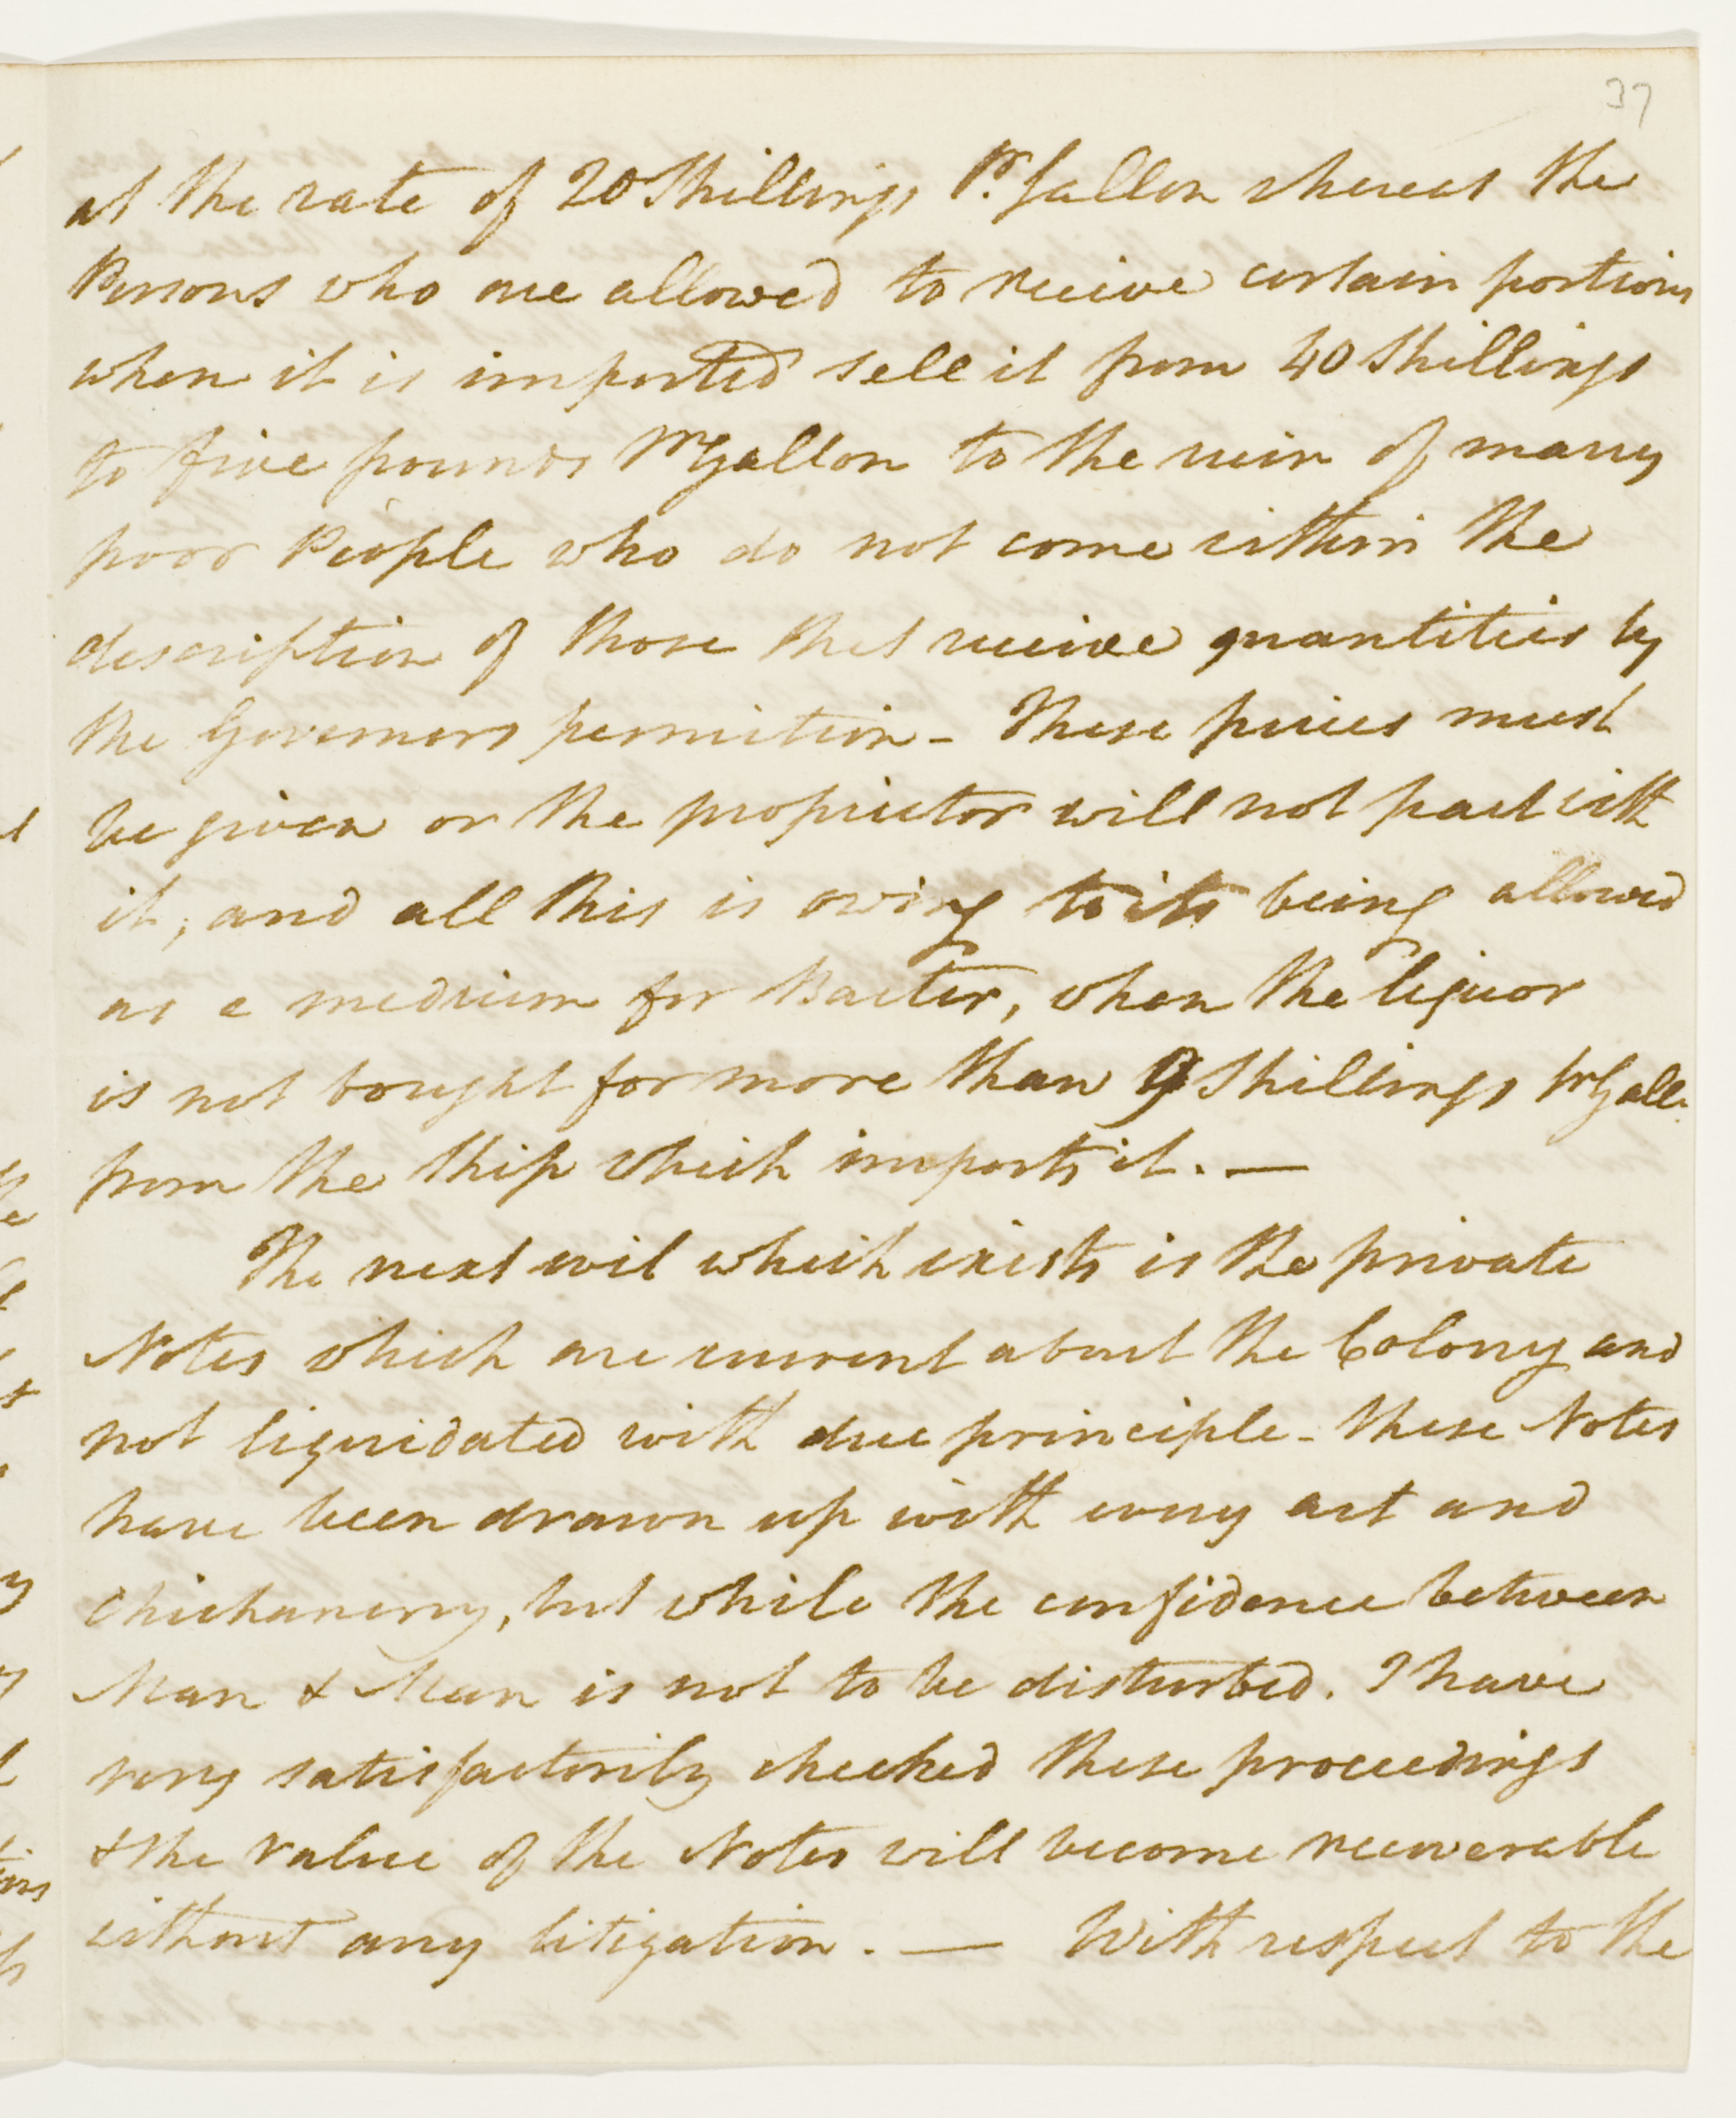 37
at the rate of 20 Shillings Pr. Gallon whereas the
Persons who are allowed to receive certain portions
when it is imported sell it from 40 Shillings
to five pounds Pr Gallon to the ruin of many
poor People who do not come within the
description of those that receive quantities by
the Governors permission - These prices must
be given or the proprietor will not part with
it, and all this is owing to its being allowed
as a medium for Barter, when the liquor
is not bought for more than 9 Shillings Pr Gall.
from the Ship which imports it. —
The next evil which exists is the private
Notes which are current about the Colony and
not liquidated with due principle - these Notes
have been drawn up with every art and
Chichanery, but while the confidence between
Man & Man is not to be disturbed. I have
very satisfactorily checked these proceedings
& the value of the Notes will become recoverable
without any litigation. — With respect to the